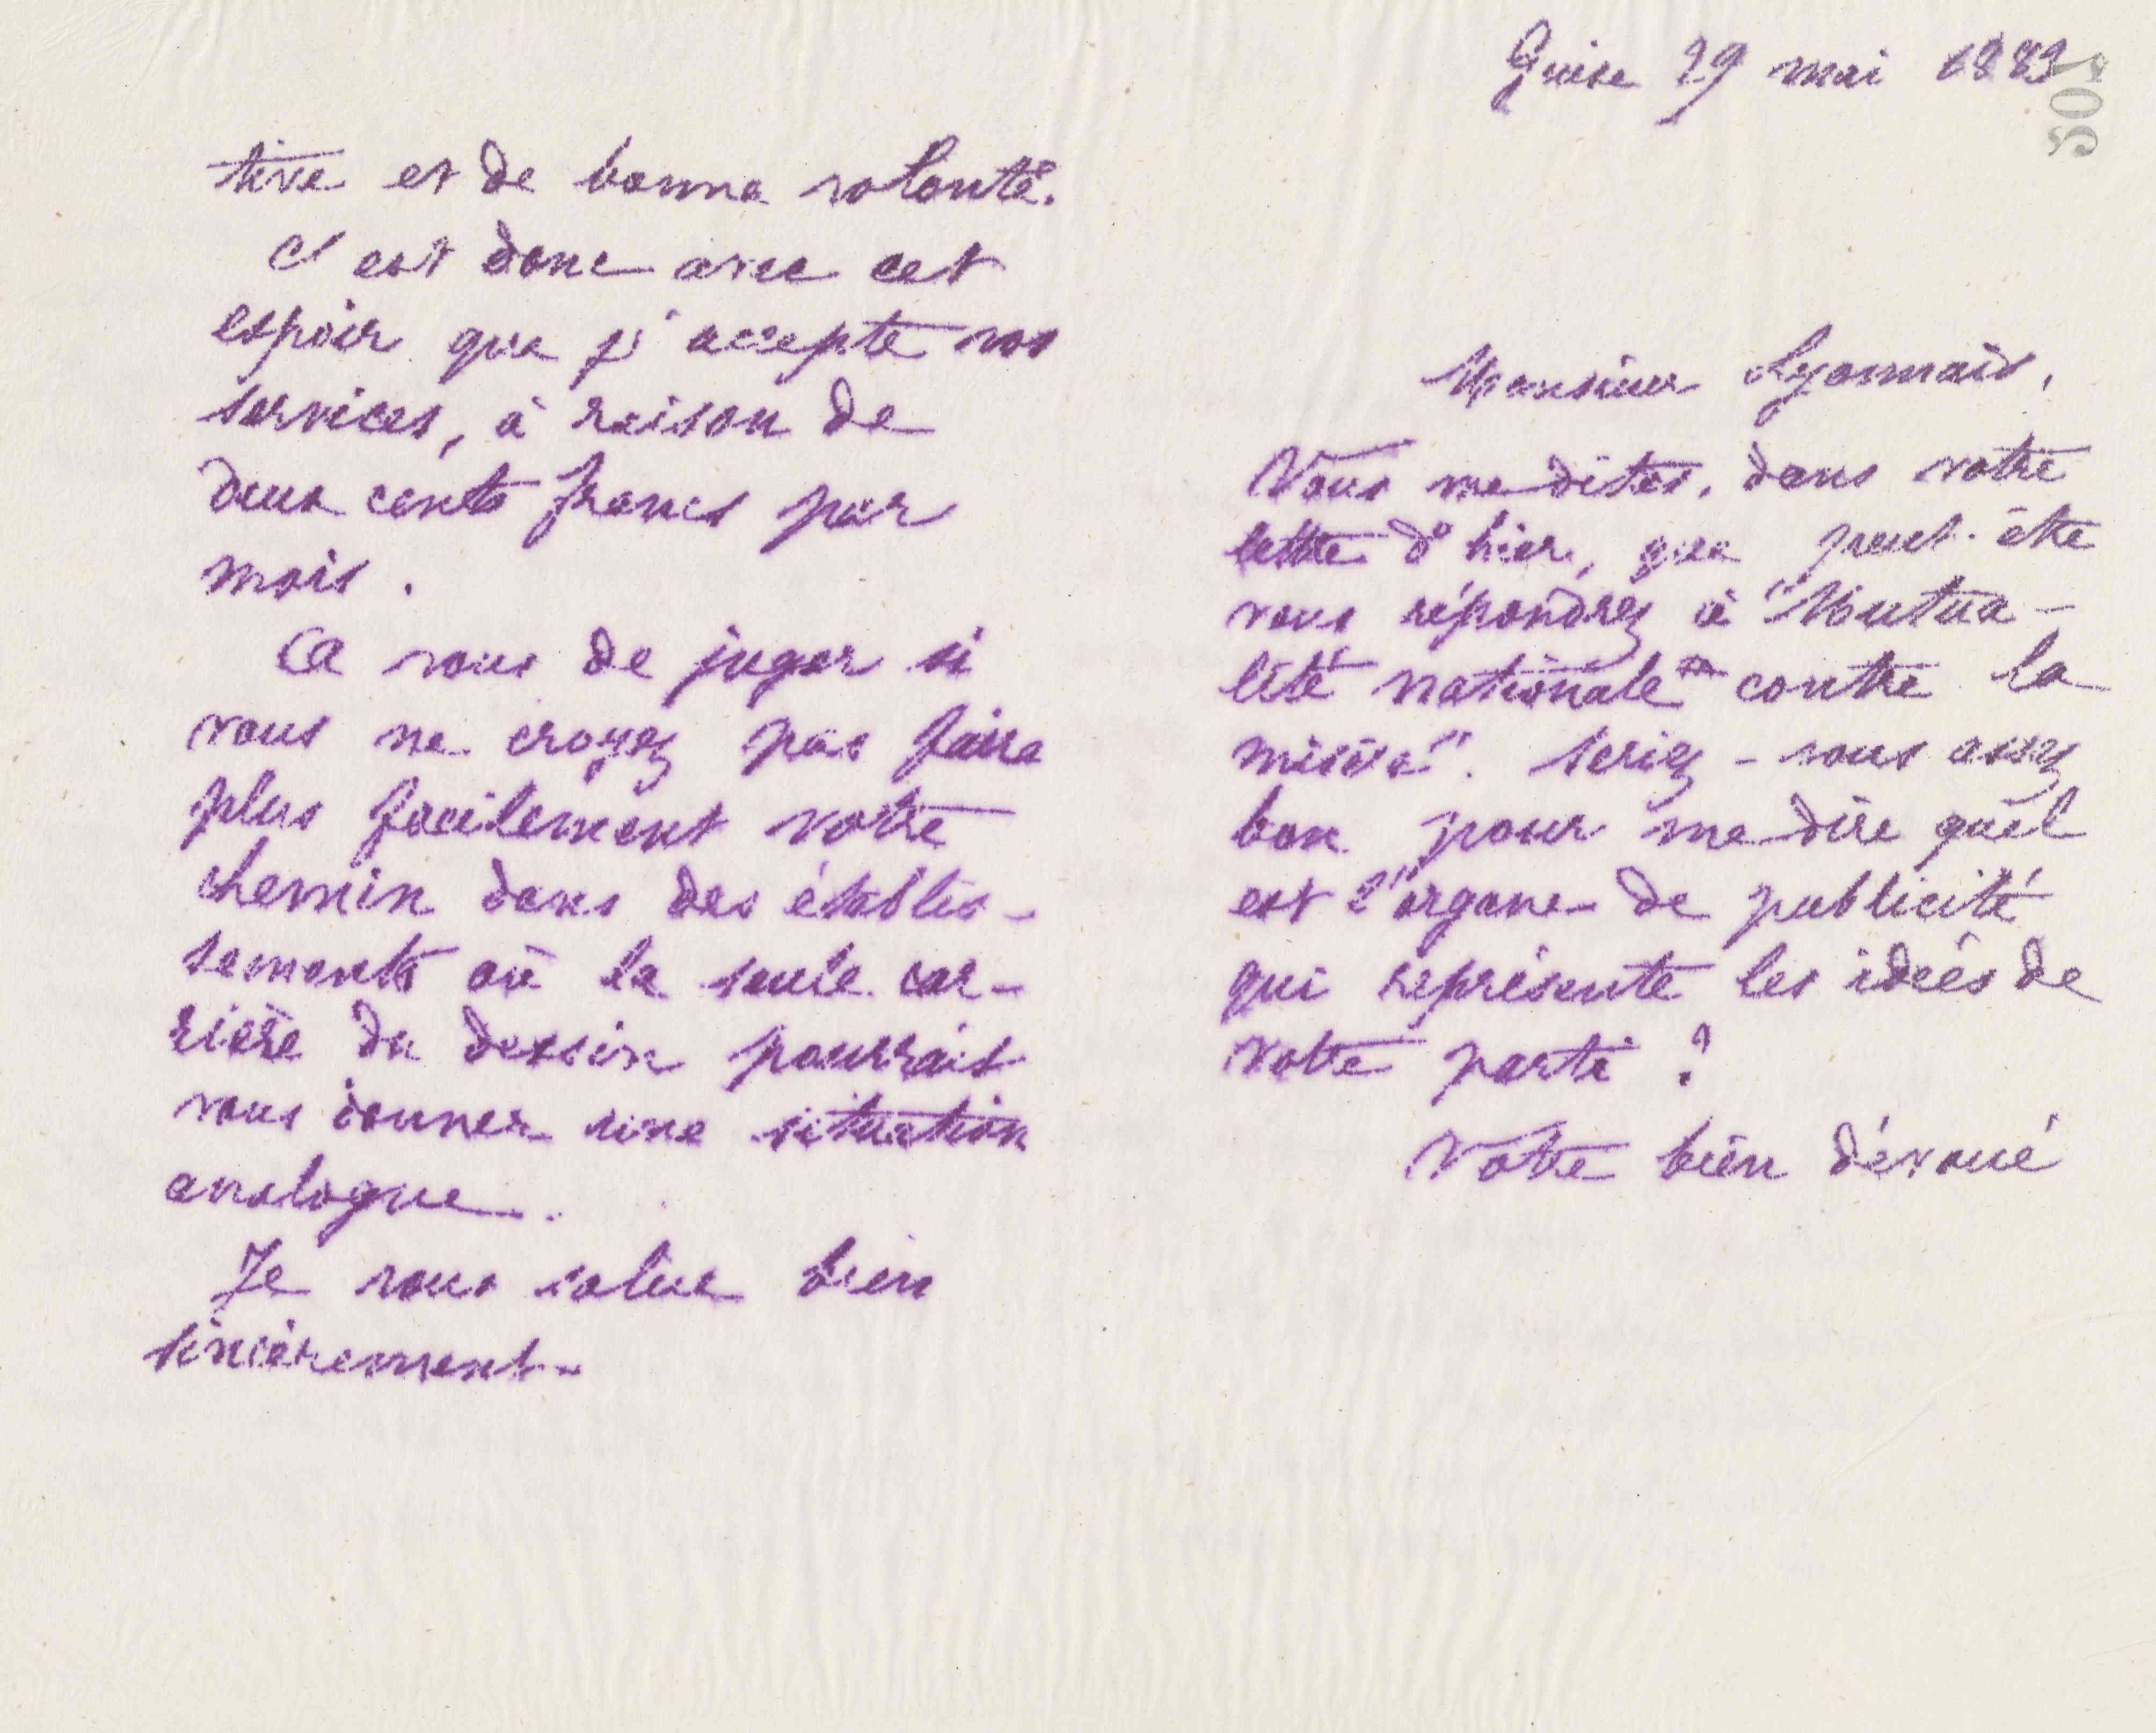 tive et de bonne volonté.
C'est donc avec cet
espoir que j'accepte vos
services, à raison de
deux cents francs par
mois.
A vous de juger si
vous ne croyez pas faire
plus facilement votre
chemin dans des établis-
sements où la seule car-
rière du dessin pourrait
vous donner une situation
analogue.
Je vous salue bien
sincèrement.
Guise 29 mai 1883
501
Monsieur Lyonnais,
Vous me dites, dans votre
lettre d'hier, que peut-être
vous répondrez à "Mutua-
lité nationale contre la
misère". Seriez-vous assez
bon pour me dire quel
est l'organe de publicité
qui représente les idées de
votre parti ?
Votre bien dévoué